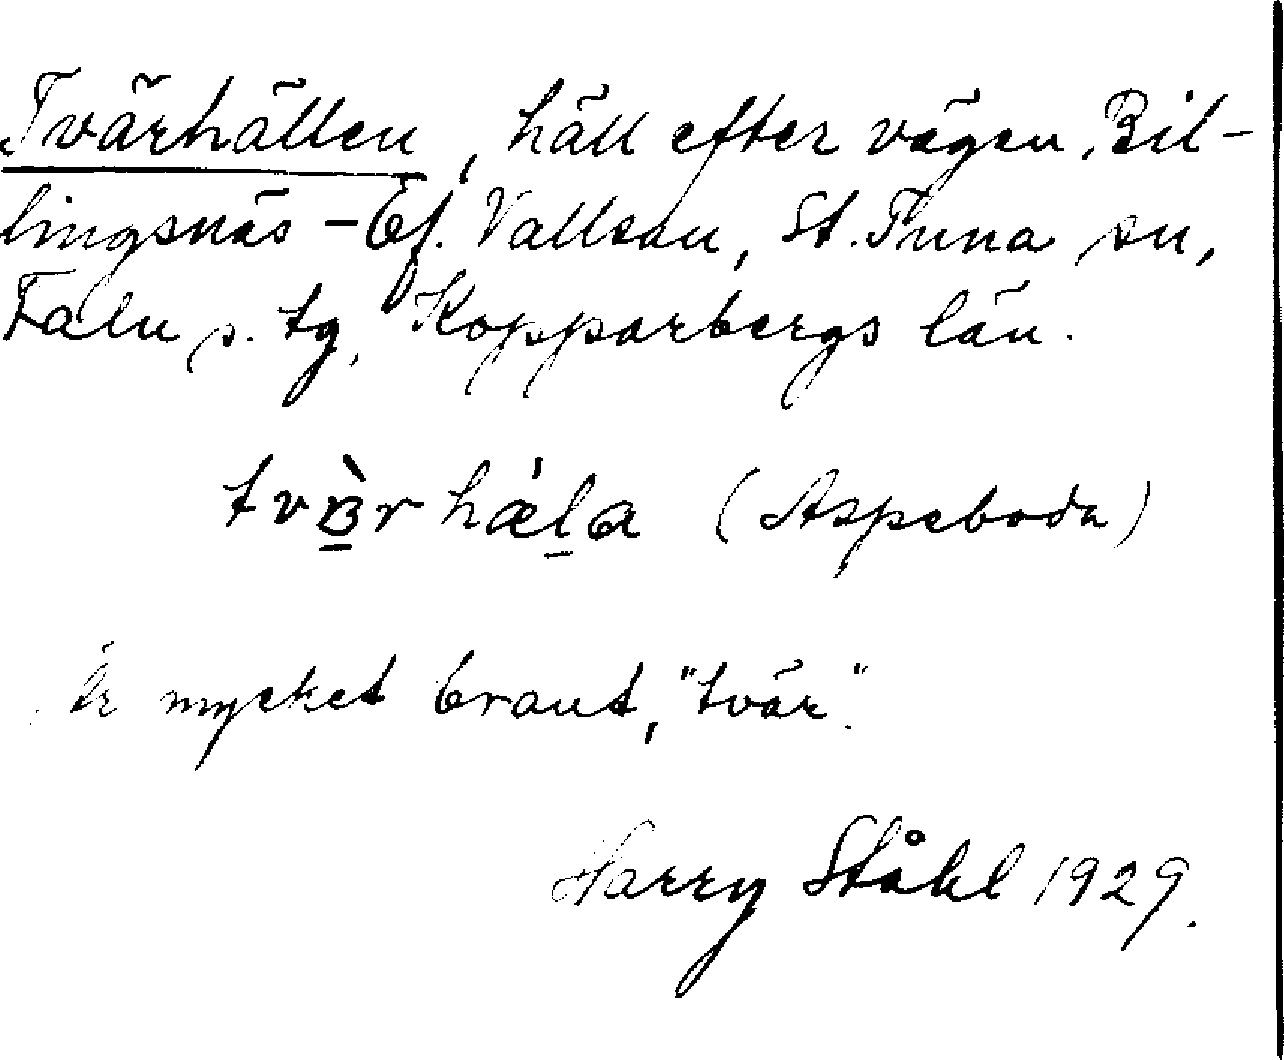 Tvärhällen, häll efter vägen Bil-
lingsnäs - Ef. Vallsån, St. Tuna sn,
Falu s. tg, Kopparbergs län.
hǽla (Aspeboda)
Är mycket brant, "tvär".
Harry Ståhl 1929.